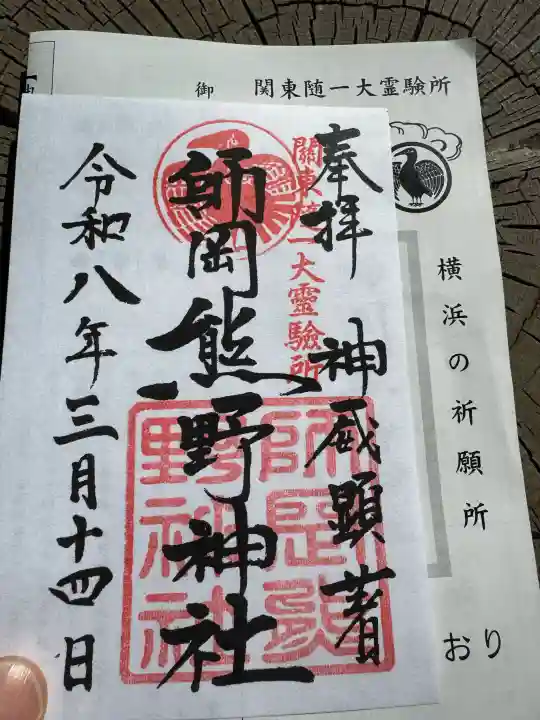 御
関東随一大霊験所
横浜の祈願所
おり
奉拝
神威顕著
關東随一大靈驗所
師岡熊野神社
令和八年三月十四日
師岡熊
野神社